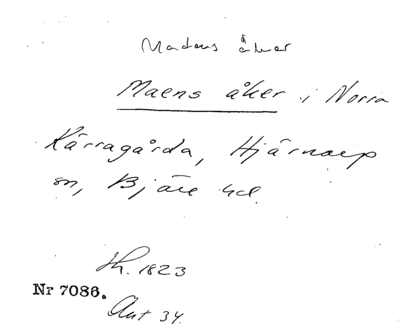 Madens åkar
Maens åker i Norra
Kärragårda, Hjärnarp
sn, Bjäre hd.
Sk. 1823
Nr 7086.
Akt 34.